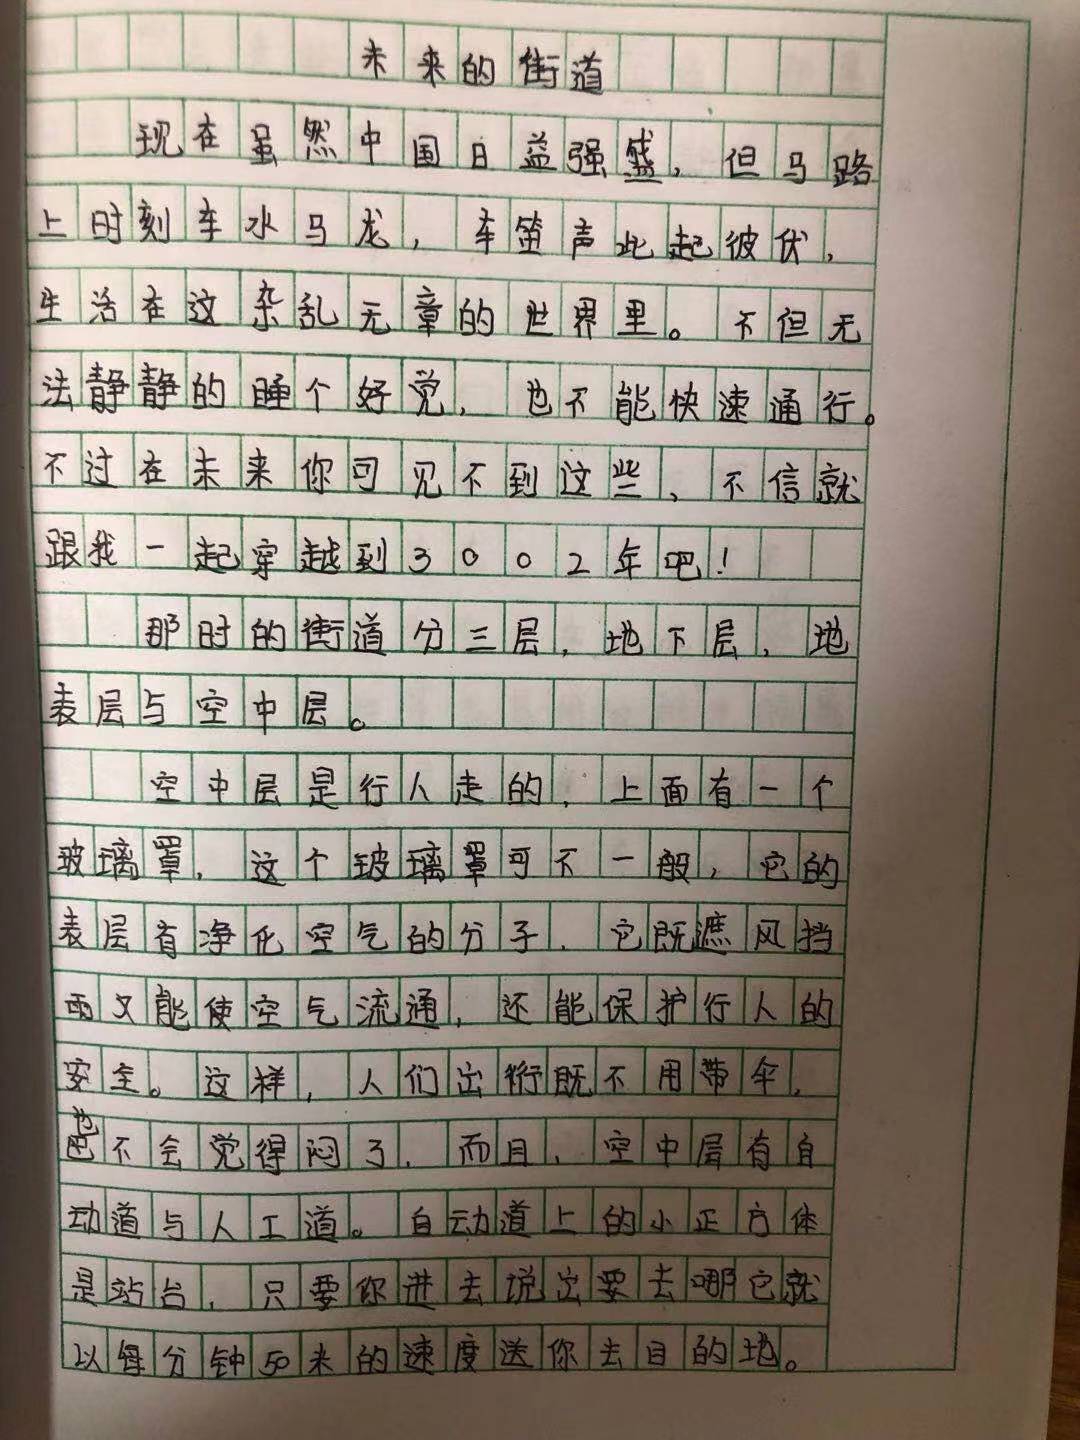 未来的街道
现在虽然中国日益强盛，但马路
上时刻车水马龙，车笛声此起彼伏，
生活在这杂乱无章的世界里。不但无
法静静的睡个好觉，也不能快速通行。
不过在未来你可见不到这些，不信就
跟我一起穿越到3002年吧！
那时的街道分三层，地下层，地
表层与空中层。
空中层是行人走的，上面有一个
玻璃罩，这个玻璃罩可不一般，它的
表层有净化空气的分子，它既遮风挡
雨又能使空气流通，还能保护行人的
安全。这样，人们出行既不用带伞，
也不会觉得闷了，而且，空中层有自
动道与人工道。自动道上的小正方体
是站台，只要你进去说出要去哪它就
以每分钟50米的速度送你去目的地。